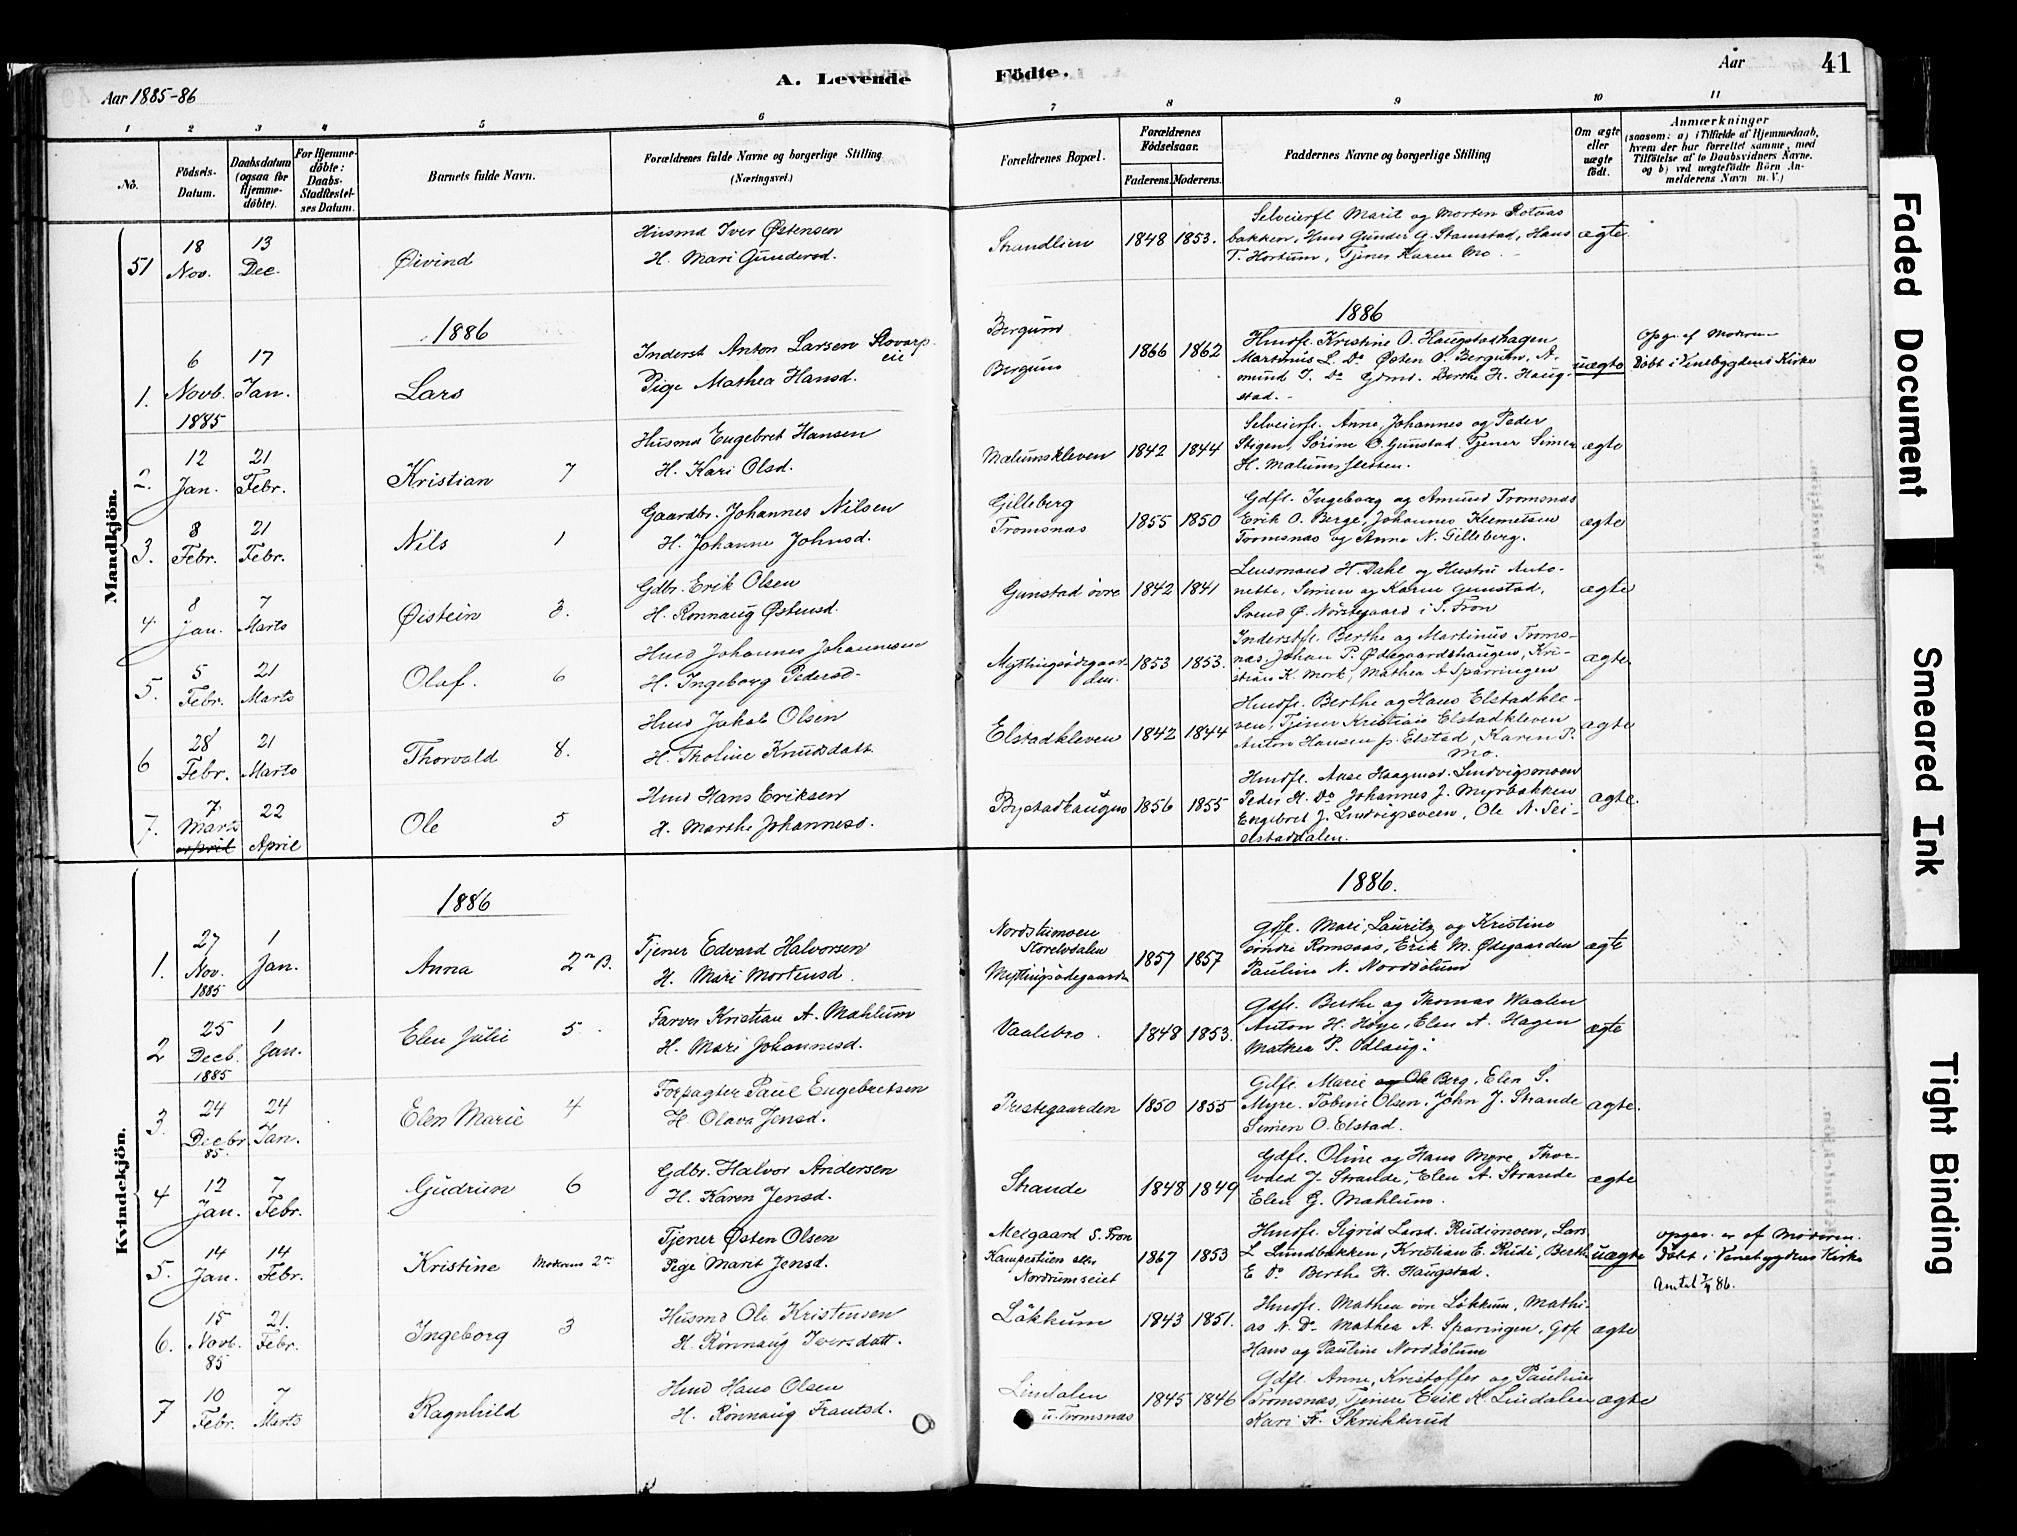 Aar 1885-86
A. Levende Födte.
Aar 41
1 2 3 4 5 6 7 8 9 10 11
No.
Födsels-Datum.
Daabsdatum (ogsaa for Hjemmedöbte).
For Hjemmedöbte: Daabs-Stadfæstelses Datum.
Barnets fulde Navn.
Forældrenes fulde Navne og borgerlige Stilling (Næringsvei.)
Forældrenes Bopæl.
Forældrenes Födselsaar.
Faderens. Moderens.
Faddernes Navne og borgerlige Stilling
Om ægte eller uægte födt.
Anmærkninger
(saasom: a) i Tilfælde af Hjemmedaab,
hvem der har forrettet samme, med
Tilföielse af to Daabsvidners Navne,
og b) ved uægtefödte Börn Anmelderens Navn m. V.)
Mandkjön.
51 18 Nov. 13 Dec. Øivind
Husmd Iver Østensen
H. Mari Gundersd.
Strandlien 1848 1853.
Selveierfl Marit og Morten Rotvas
bakken, Hmd Gunder G. Stamstad, Hans
T. Hortum, Tjener Karen Mo.
ægte.
1886
1886
1. 6 Novb. 1885 17 Jan. Lars
Inderst Anton Larsen
Pige Mathea Hansd.
Bergum
Bergum
1866 1862
Hmdfl. Kristine O. Haugstadhagen
Martinus L. Do Østen O. Bergum, A-
mund J. Do Gdmd. Berthe H. Haug-
stad.
uægte
Opgr. af Moderen
Döbt i Venebygdens Kirke
2. 12 Jan. 21 Febr. Kristian 7
Husmd Engebret Hansen
H. Kari Olsd.
Mælumskleven 1842 1844
Selveierfl. Anne, Johannes og Peder
Stigen, Sørine O. Gunstad. Tjener Simen
H. Mælumsflesen.
ægte
3. 8 Febr. 21 Febr. Nils 1
Gaardbr. Johannes Nilsen
H. Johanne Johnsd.
Gilleberg
Tromsnæs
1855 1850
Gdfl. Ingeborg og Amund Tromsnæs
Erik O. Berge, Johannes Klemetsen
Tromsnæs og Anne N. Gilleberg.
ægte
4. 8 Jan. 7 Marts Øistein 3.
Gdbr. Erik Olsen
H. Rønnaug Østensd.
Gunstad övre 1842 1841
Lensmand H. Dahl og Hustru Anto-
nette, Simen og Karen Gunstad,
Svend Ø. Nörstegaard i S. Fron
ægte
5. 5 Febr. 21 Marts Olaf. 6
Hmd Johannes Johannesen
H. Ingeborg Pedersd.
Mythingsødegaar-
den.
1853 1853.
Inderstfl. Berthe og Martinus Troms-
næs, Johan P. Ødegaardshaugen, Kri-
stian K. Mork, Mathea A Sparringen
ægte.
6 28 Febr. 21 Marts Thorvald 8.
Hmd Jakob Olsen
H. Tholine Knudsdatt.
Elstadkleven 1842 1844
Hmdfl. Berthe og Hans Elstadkle-
ven, Tjener Kristian Elstadkleven
Anton Hansen p. Elstad, Karen P.
Mo.
ægte
7. 7 Marts april 22 April Ole 5
Hmd Hans Eriksen
H. Marthe Johannesd.
Brystadhaugen 1856 1855
Hmdfl. Aase Haagensd. Lundvigsmoen
Peder H. Do Johannes J. Myrbakken
Engebret J. Lundvigsveen, Ole A. Sei-
elstaddalen.
ægte.
Kvindekjön.
1886
1886.
1. 27 Nov. 1885 1 Jan. Anna 2n B.
Tjener Edvard Halvorsen
H. Mari Mortensd.
Nordstumoen
Storelvdalen
Mythingsødegaarden
1857 1857
Gdfl. Mari, Lauritz og Kristine
söndre Romsaas, Erik M. Ødegaarden
Pauline N. Norddølum
ægte
2 25 Decb. 1885 1 Jan. Elen Julie 5
Farver Kristian A. Mæhlum
H. Mari Johannesd.
Vaalebro. 1848 1853.
Gdfl. Berthe og Thomas Vaalen
Anton H. Høye, Elen A. Hagen
Mathea P. Odlaug.
ægte
3. 24 Decbr 85. 24 Jan. Elen Marie 4
Forpagter Paul Engebretsen
H. Olava Jensd.
Præstegaarden 1850 1855
Gdfl. Marie og Ole Berg, Elen S.
Myre. Tobine Olsen, John J. Strande
Simen O. Elstad.
ægte.
4 12 Jan. 7 Febr. Gudrun 6
Gdbr. Halvor Andersen
H. Karen Jensd.
Strande 1848 1849
Gdfl. Oline og Hans Myre, Thor-
vald J. Strande, Elen A. Strande
Elen G. Mæhlum.
ægte
5. 14 Jan. 14 Febr. Kristine Moderens 2n
Tjener Østen Olsen
Pige Marit Jensd.
Melgaard S. Fron
Kampestuen elr
Nordrumseiet
1867 1853
Hmdfl. Sigrid Larsd. Rudimoen, Lars
L Lundbakken, Kristian E. Rudi, Berthe
E Do Berthe H. Haugstad.
uægte
opgiv. er af Moderen.
Döbt i Venebygdens Kirke
Amtet 7/4 86.
6. 15 Novb. 85 21. Febr. Ingeborg 3
Husmd Ole Kristensen
H. Rønnaug Iversdatt.
Løkkum 1843 1851.
Hmdfl. Mathea övr Løkkum, Mathi-
as N. Do Mathea A. Sparingen, Gdfl
Hans og Pauline Norddølum
ægte
7 10 Febr. 7 Marts Ragnhild
Hmd Hans Olsen
H. Rönnaug Frantsd.
Lindalen
u. Tromsnæs
1845 1846
Gdfl. Anne, Kristoffer og Pauline
Tromsnæs, Tjenere Erik H. Lindalen
Kari F. Skrukkerud
ægte
Faded Document
Smeared Ink
Tight Binding